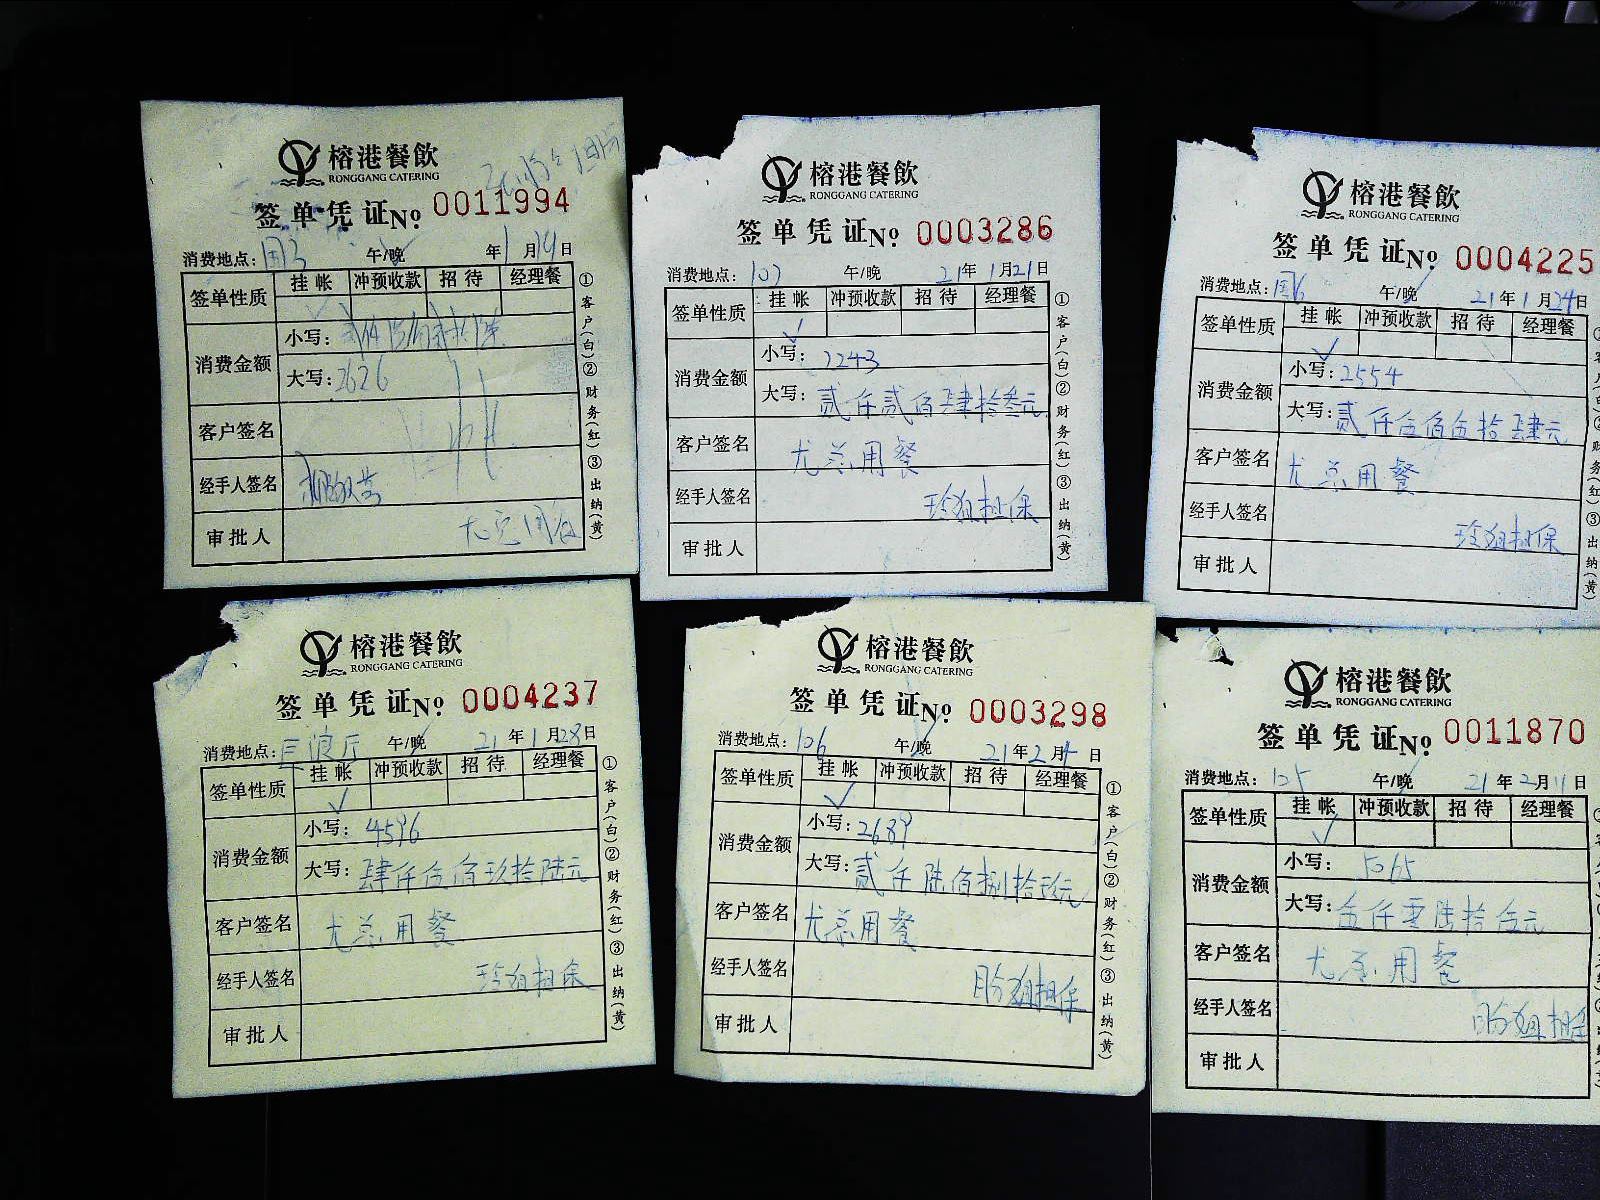 榕港餐飲
RONGGANG CATERING
签单凭证No 0011994
消费地点: 午/晚 年1月19日
签单性质 挂帐 冲预收款 招待 经理餐
消费金额
小写:
大写:2626
客户签名
经手人签名
审批人
①客户(白)②财务(红)③出纳(黄)
榕港餐飲
RONGGANG CATERING
签单凭证No 0003286
消费地点:107 午/晚 21年1月21日
签单性质 挂帐 冲预收款 招待 经理餐
✓
消费金额
小写:2243
大写:贰仟贰佰肆拾叁元
客户签名 尤总用餐
经手人签名 玲姐担保
审批人
①客户(白)②财务(红)③出纳(黄)
榕港餐飲
RONGGANG CATERING
签单凭证No 0004225
消费地点:国6 午/晚 21年1月24日
签单性质 挂帐 冲预收款 招待 经理餐
✓
消费金额
小写:2554
大写:贰仟伍佰伍拾肆元
客户签名 尤总用餐
经手人签名 玲姐担保
审批人
榕港餐飲
RONGGANG CATERING
签单凭证No 0004237
消费地点: 午/晚 21年1月28日
签单性质 挂帐 冲预收款 招待 经理餐
✓
消费金额
小写:4596
大写:肆仟伍佰玖拾陆元
客户签名 尤总用餐
经手人签名 玲姐担保
审批人
①客户(白)②财务(红)③出纳(黄)
榕港餐飲
RONGGANG CATERING
签单凭证No 0003298
消费地点:106 午/晚 21年2月4日
签单性质 挂帐 冲预收款 招待 经理餐
✓
消费金额
小写:2689
大写:贰仟陆佰捌拾玖元
客户签名 尤总用餐
经手人签名 盼姐担保
审批人
①客户(白)②财务(红)③出纳(黄)
榕港餐飲
RONGGANG CATERING
签单凭证No 0011870
消费地点:105 午/晚 21年2月11日
签单性质 挂帐 冲预收款 招待 经理餐
✓
消费金额
小写:5065
大写:伍仟零陆拾伍元
客户签名 尤总用餐
经手人签名 盼姐担保
审批人